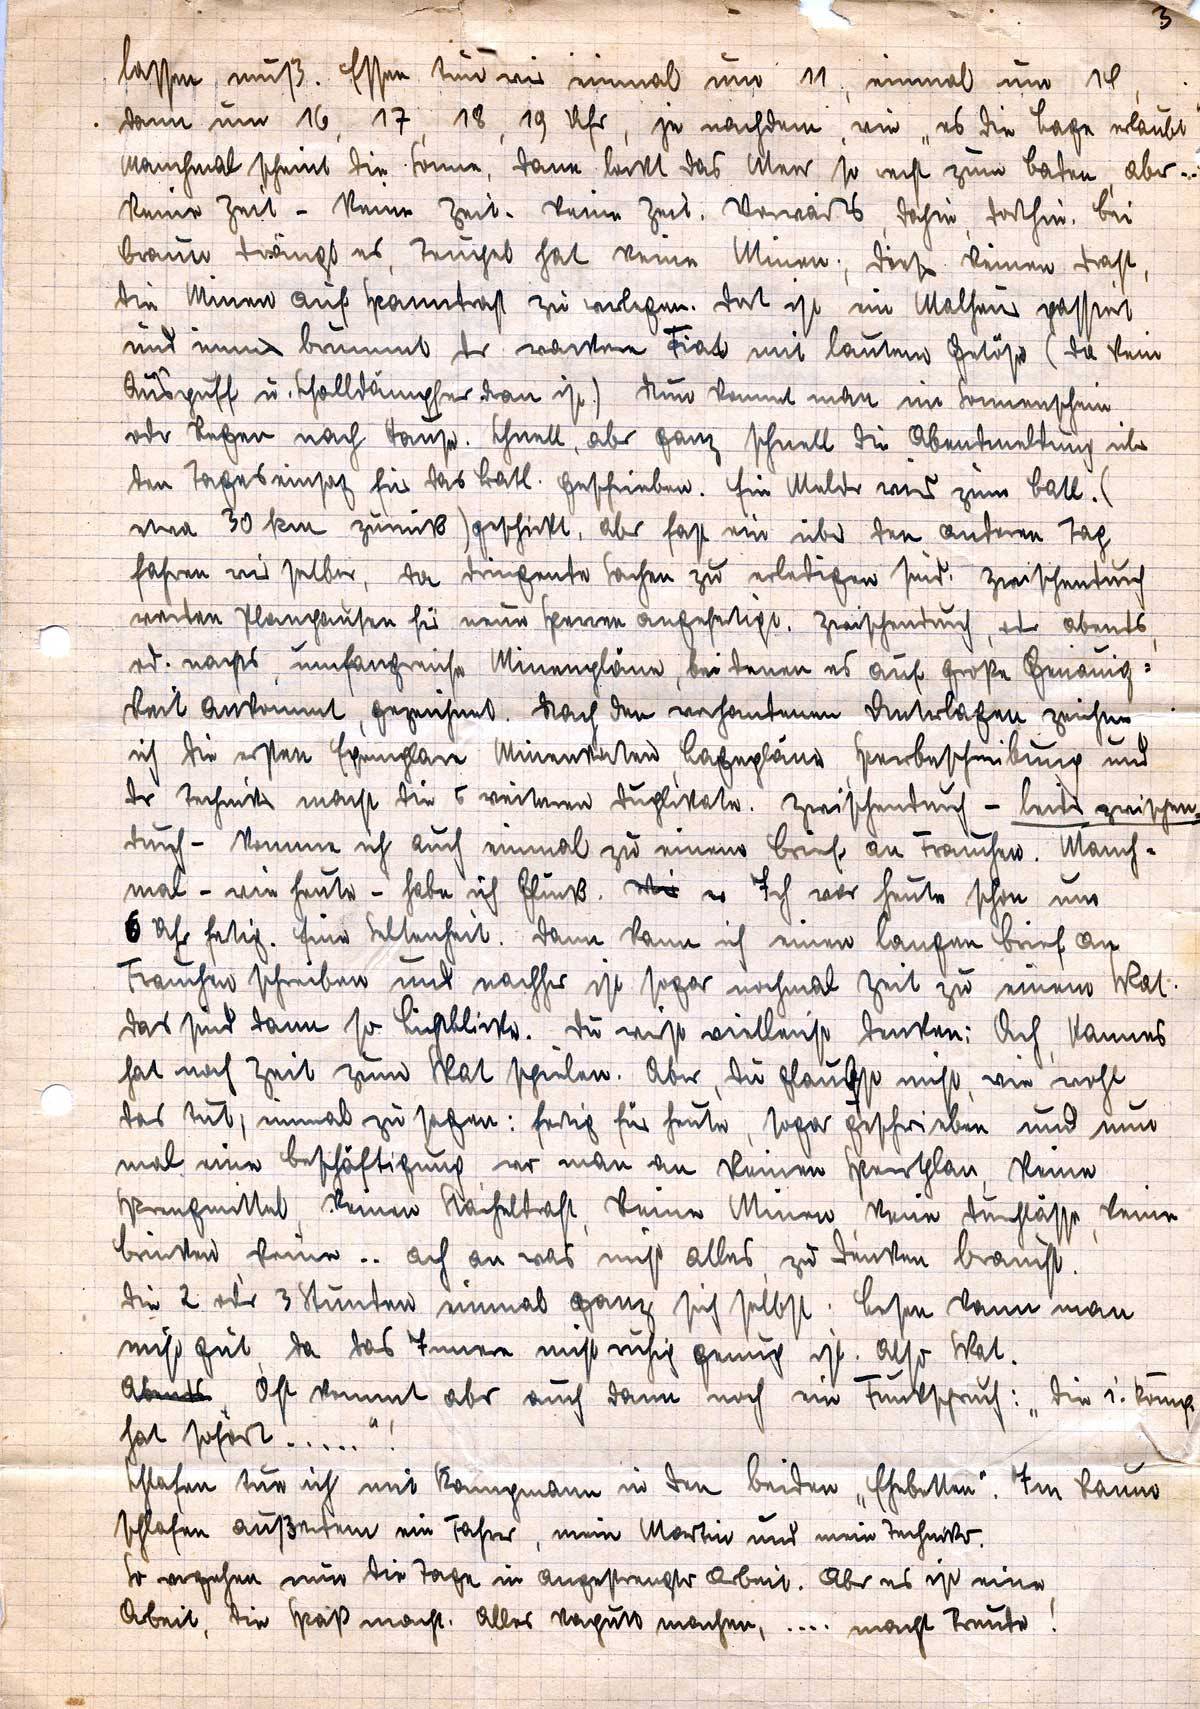 3
lassen muß. Essen tun wir einmal um 11, einmal um 14,
dann um 16, 17, 18, 19 Uhr, je nachdem, wie „es die Lage erlaubt
Manchmal scheint die Sonne, dann lockt das Meer so recht zum baden, aber...
keine Zeit - keine Zeit. keine Zeit. Vorwärts, dahin, dorthin. Bei
Braun drängt es, hat keine Minen, keinen Draht,
die Minen auf Spanndraht zu verlegen. Dort ist ein Malheur passiert
und immer brummt der wackere Fiat mit lautem Getöse (da kein
Auspuff u. Schalldämpfer dran ist.) Nun kommt man im Sonnenschein
oder Regen nach Hause. Schnell, aber ganz schnell die Abendmeldung über
den Tageseinsatz für das Batl. geschrieben. Ein Melder wird zum Batl. (
etwa 30 km zurück) geschickt, aber fast ein über den anderen Tag
fahren wir selber, da dringende Sachen zu erledigen sind. Zwischendurch
werden Planpausen für neue Sperren angefertigt. Zwischendurch, oder abends,
od. nachts, umfangreiche Minenpläne, bei denen es auf große Genauig=
keit ankommt, gezeichnet. Nach den vorhandenen Unterlagen zeichne
ich die ersten Exemplare Minenkarten, Lagepläne, Sperrbeschreibung und
der Techniker macht die 5 weiteren Duplikate. Zwischendurch - leider zwischen
durch - komme ich auch einmal zu einem Brief an Frauchen. Manch=
mal - wie heute - habe ich Glück. Ich war heute schon um
6 Uhr fertig. Eine Seltenheit. Dann kann ich einen langen Brief an
Frauchen schreiben und nachher ist sogar nochmal Zeit zu einem Skat.
Das sind dann so Lichtblicke. Du wirst vielleicht denken: Ach, Hannes
hat noch Zeit zum Skat spielen. Aber, du glaubst nicht, wie wohl
das tut, einmal zu sagen: fertig für heute, sogar geschrieben und nun
mal eine Beschäftigung, wo man an keinen Sperrplan, keine
Sprengmittel, keinen Stacheldraht, keine Minen, keine Durchlässe, keine
Brücken, keine .. ach an was nicht alles, zu denken braucht.
Die 2 oder 3 Stunden einmal ganz sich selbst. Lesen kann man
nicht gut, da das Innere nicht ruhig genug ist. Also Skat.
Abends Oft kommt aber auch dann noch ein Funkspruch: „Die 1. Komp.
hat sofort ......"!
Schlafen tue ich mit Kampmann in den beiden „Ehebetten". Im Raum
schlafen außerdem ein Fahrer, mein Martin und mein Techniker.
So vergehen nun die Tage in angestrengter Arbeit. Aber es ist eine
Arbeit, die Spaß macht. Alles kaputt machen, .... macht Freude!